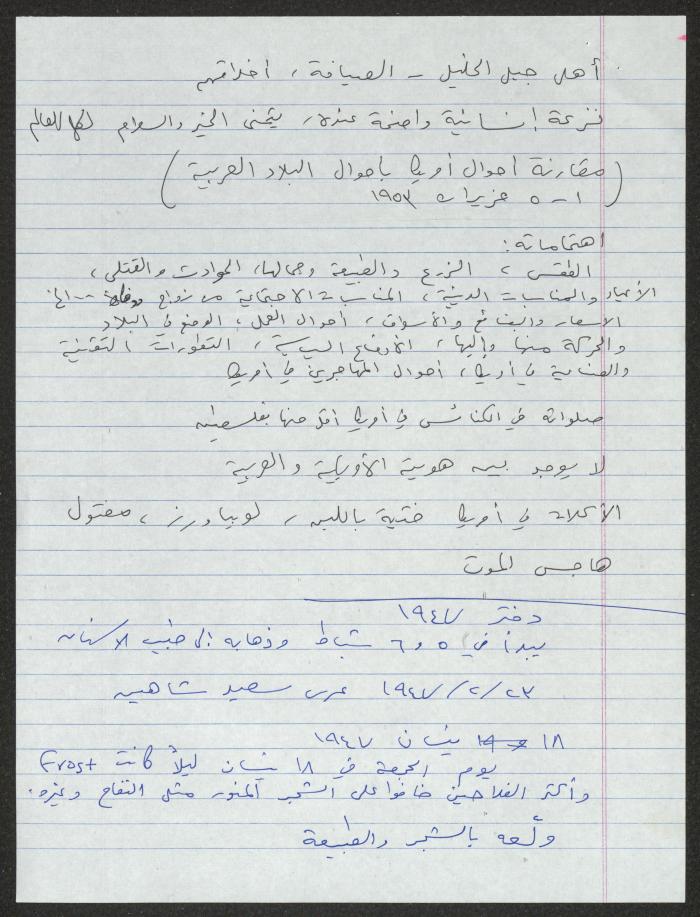 أهل جبل الخليل - الضيافة، أخلاقهم
نزعة إنسانية واضحة عنده، يتمنى الخير والسلام لكل العالم
(مقارنة أحوال أمريكا بأحوال البلاد العربية)
١ - ٥ حزيران ١٩٥٣
اهتماماته:
الطقس، الزرع والطبيعة وجمالها، الحوادث والقتلى،
الأعياد والمناسبات الدينية، المناسبات الاجتماعية من زواج ... الخ
الاسعار والبضائع والأسواق، أحوال العمل، الوضع في البلاد
والحركة منها وإليها، الأوضاع السياسية، التطورات التقنية
والصناعية في أمريكا، أحوال المهاجرين في أمريكا
صلواته في الكنائس في أمريكا أقل منها بفلسطين
لا يوجد بين هوية الأمريكية والعربية
الأكلات في أمريكا فتية باللبن، لوبيا ورز، مفتول
هاجس الموت
دفتر ١٩٤٧
يبدأ في ٥ و ٦ شباط وذهابه إلى طبيب الاسنان
١٩٤٧/٢/٢٣ عرس سعيد شاهين
١٨ نيسان ١٩٤٧
يوم الجمعة في ١٨ نيسان ليلاً كانت Frost
وأكثر الفلاحين خافوا على الشجر المنور مثل التفاح وغيره.
ولعه بالشجر والطبيعة